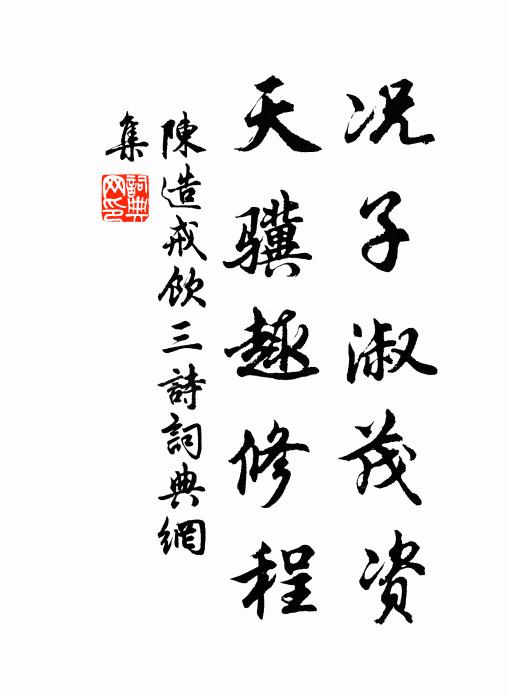 况子淑茂资
天骥趣修程
陳造戒飲三詩詞典網
集
詞典
网印